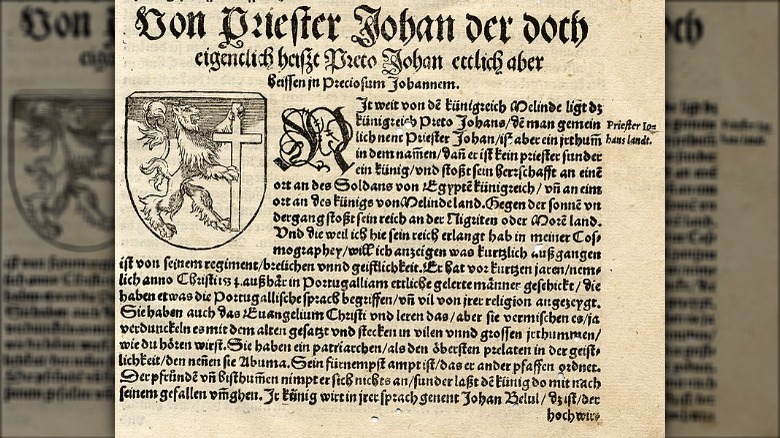 Von Priester Johan der doch
eigentlich heißt Preto Johan ettlich aber
heissen jn Preciosum Johannem.
NJt weit von dē künigreich Melinde ligt dz
künigreich Preto Johans/dē man gemein
lich nent Priester Johan/ist aber ein jrthum̄
in dem nam̄en/dañ er ist kein priester sunder
ein künig/vnd stoßt sein herrschafft an einē
ort an des Soldans von Egyptē künigreich/ vn̄ an eim
ort an des künigs von Melinde land. Gegen der sonnē vn
dergang stoßt sein reich an der Nigriten oder Morē land.
Vnd die weil ich hie sein reich erlangt hab in meiner Cos⸗
mographey/will ich anzeigen was kurtzlich außgangen
ist von seinem regiment/breüchen vnnd geistligkeit. Er hat vor kurtzen jaren/nem⸗
lich anno Christi 1534. außhär in Portugalliam ettliche gelerte männer geschickt/ die
haben etwas die Portugallische sprach begriffen/vn̄ vil von jrer religion angezeygt.
Sie haben auch das Euangelium Christi vnd leren das/aber sie vermischen es/ja
verdunckeln es mit dem alten gesatz vnd stecken in vilen vnnd grossen jrthummen/
wie du hören wirst. Sie haben ein patriarchen/als den öbersten prelaten in der geist⸗
lichkeit/den nen̄en sie Abuma. Sein fürnempst ampt ist/das er ander pfaffen ordnet.
Der pfründē vn̄ bisthum̄en nimpt er sich nichts an/sunder laßt dē künig do mit nach
seinem gefallen vm̄ghen. Jr künig wirt in jrer sprach genent Johan Belul/ dz ist/der
hochwir⸗
Priester Jo⸗
hans landt.